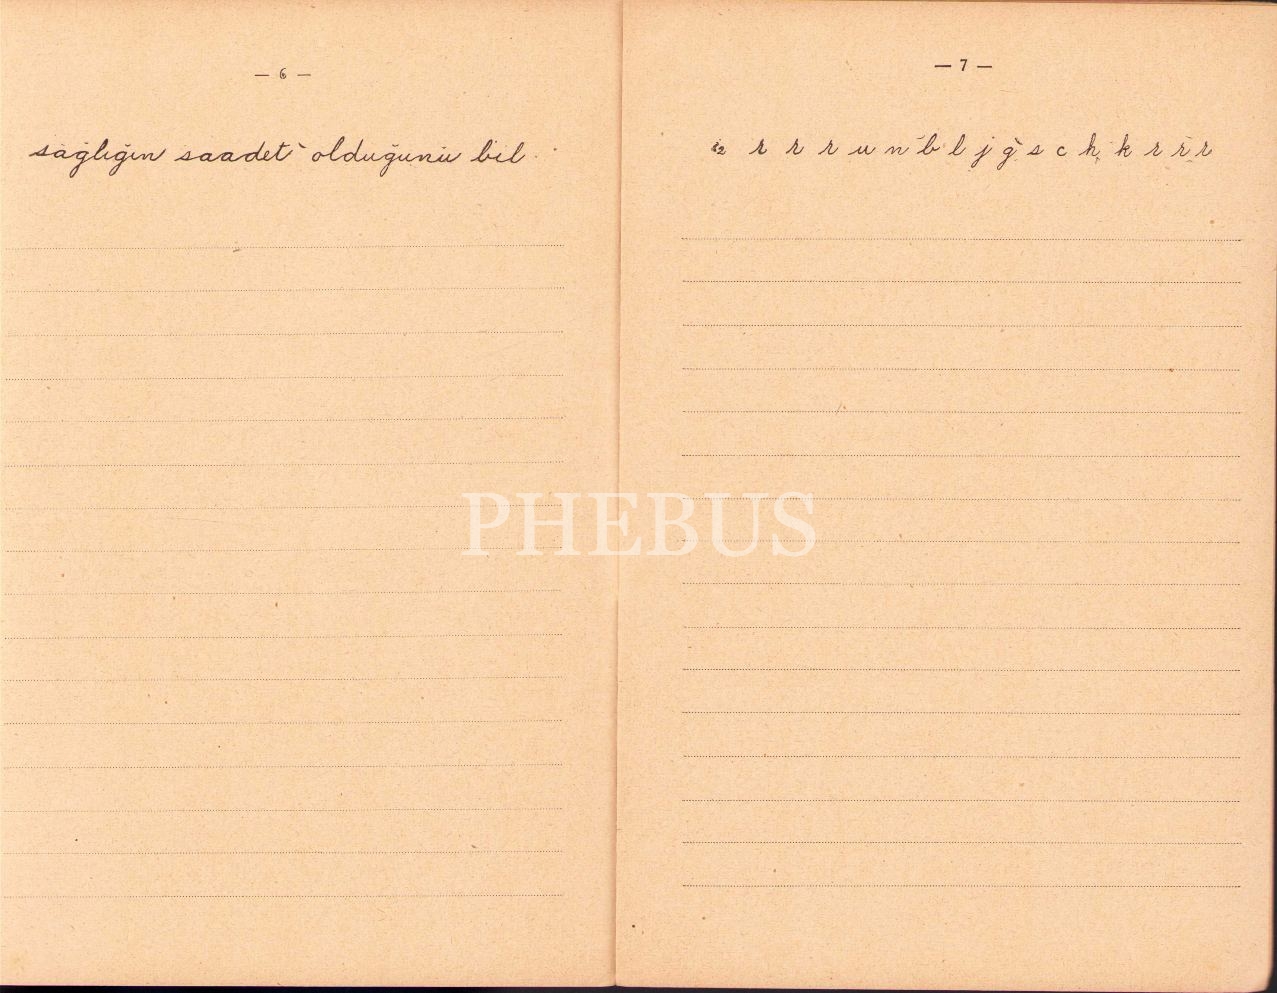 — 6 —
sağlığın saadet olduğunu bil
— 7 —
r r r u n b l j ğ s c h k r r r
PHEBUS